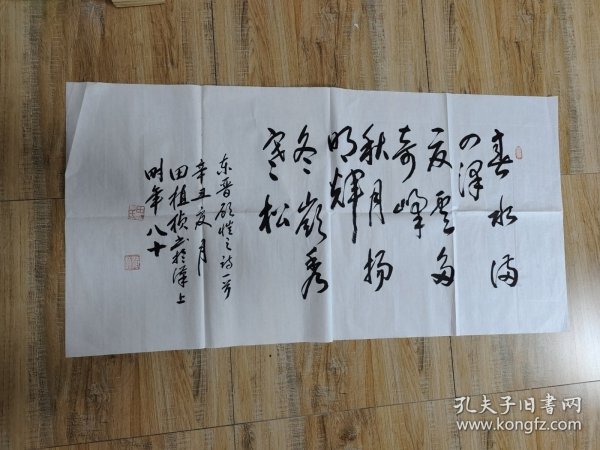 春水满
四泽
夏云多
奇峰
秋月扬
明辉
冬岭秀
寒松
东晋顾恺之诗一首
辛丑夏月
田植桢书于汉上
时年八十
孔夫子旧书网
www.kongfz.com